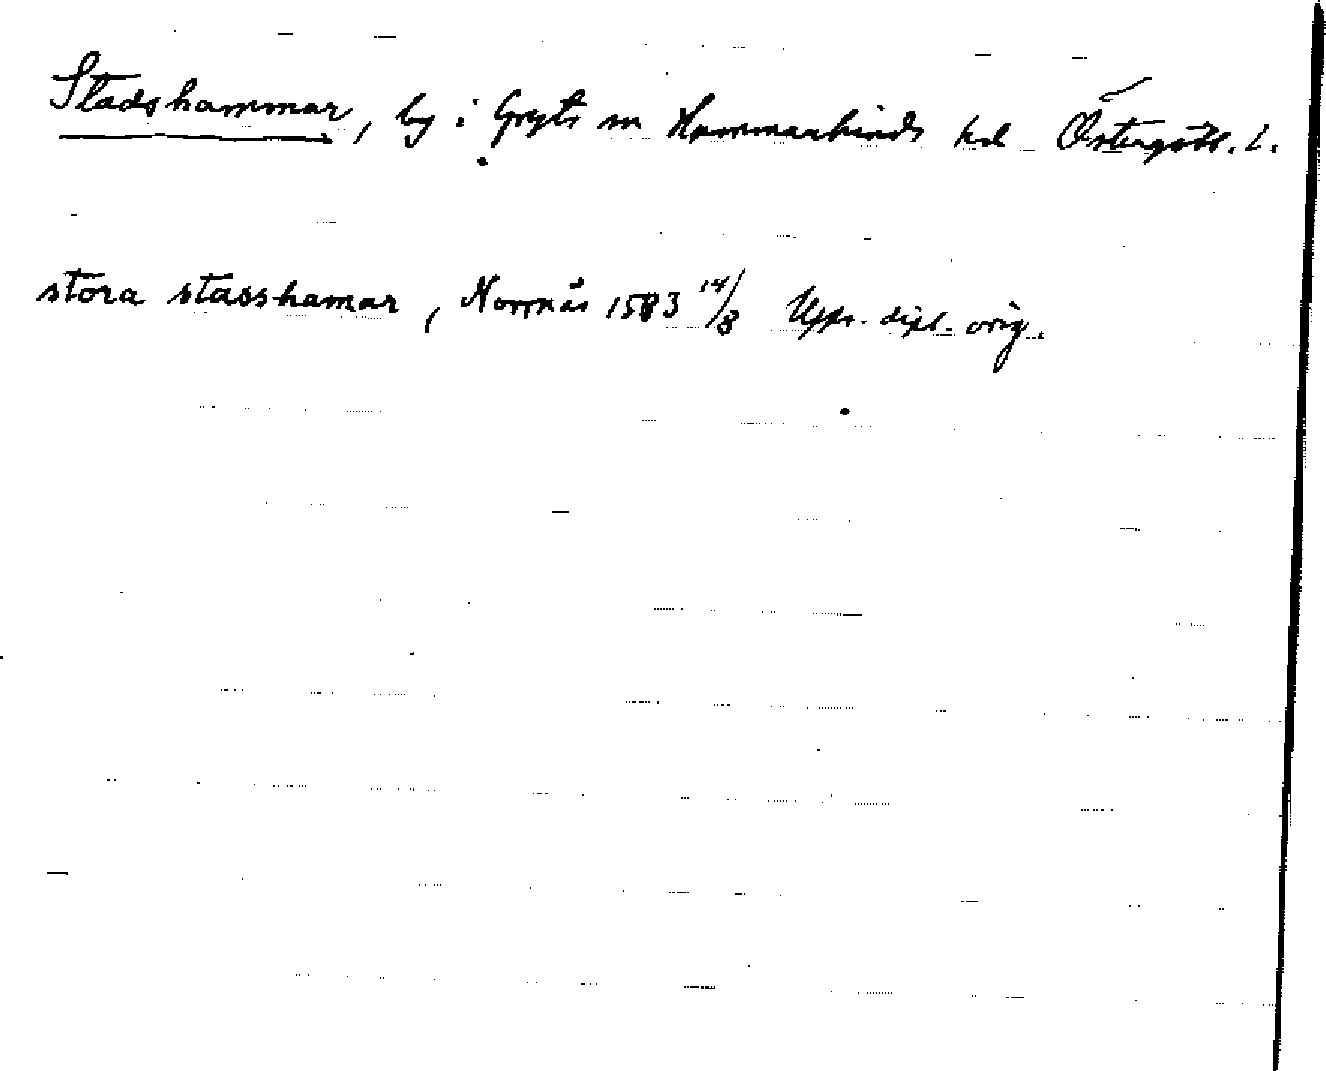 Stadshammar, by i Gryts sn Hammarkinds hd Östergötl. l.
stora stasshamar, Norrnäs 1583 14/8 Upps. dipl. orig.